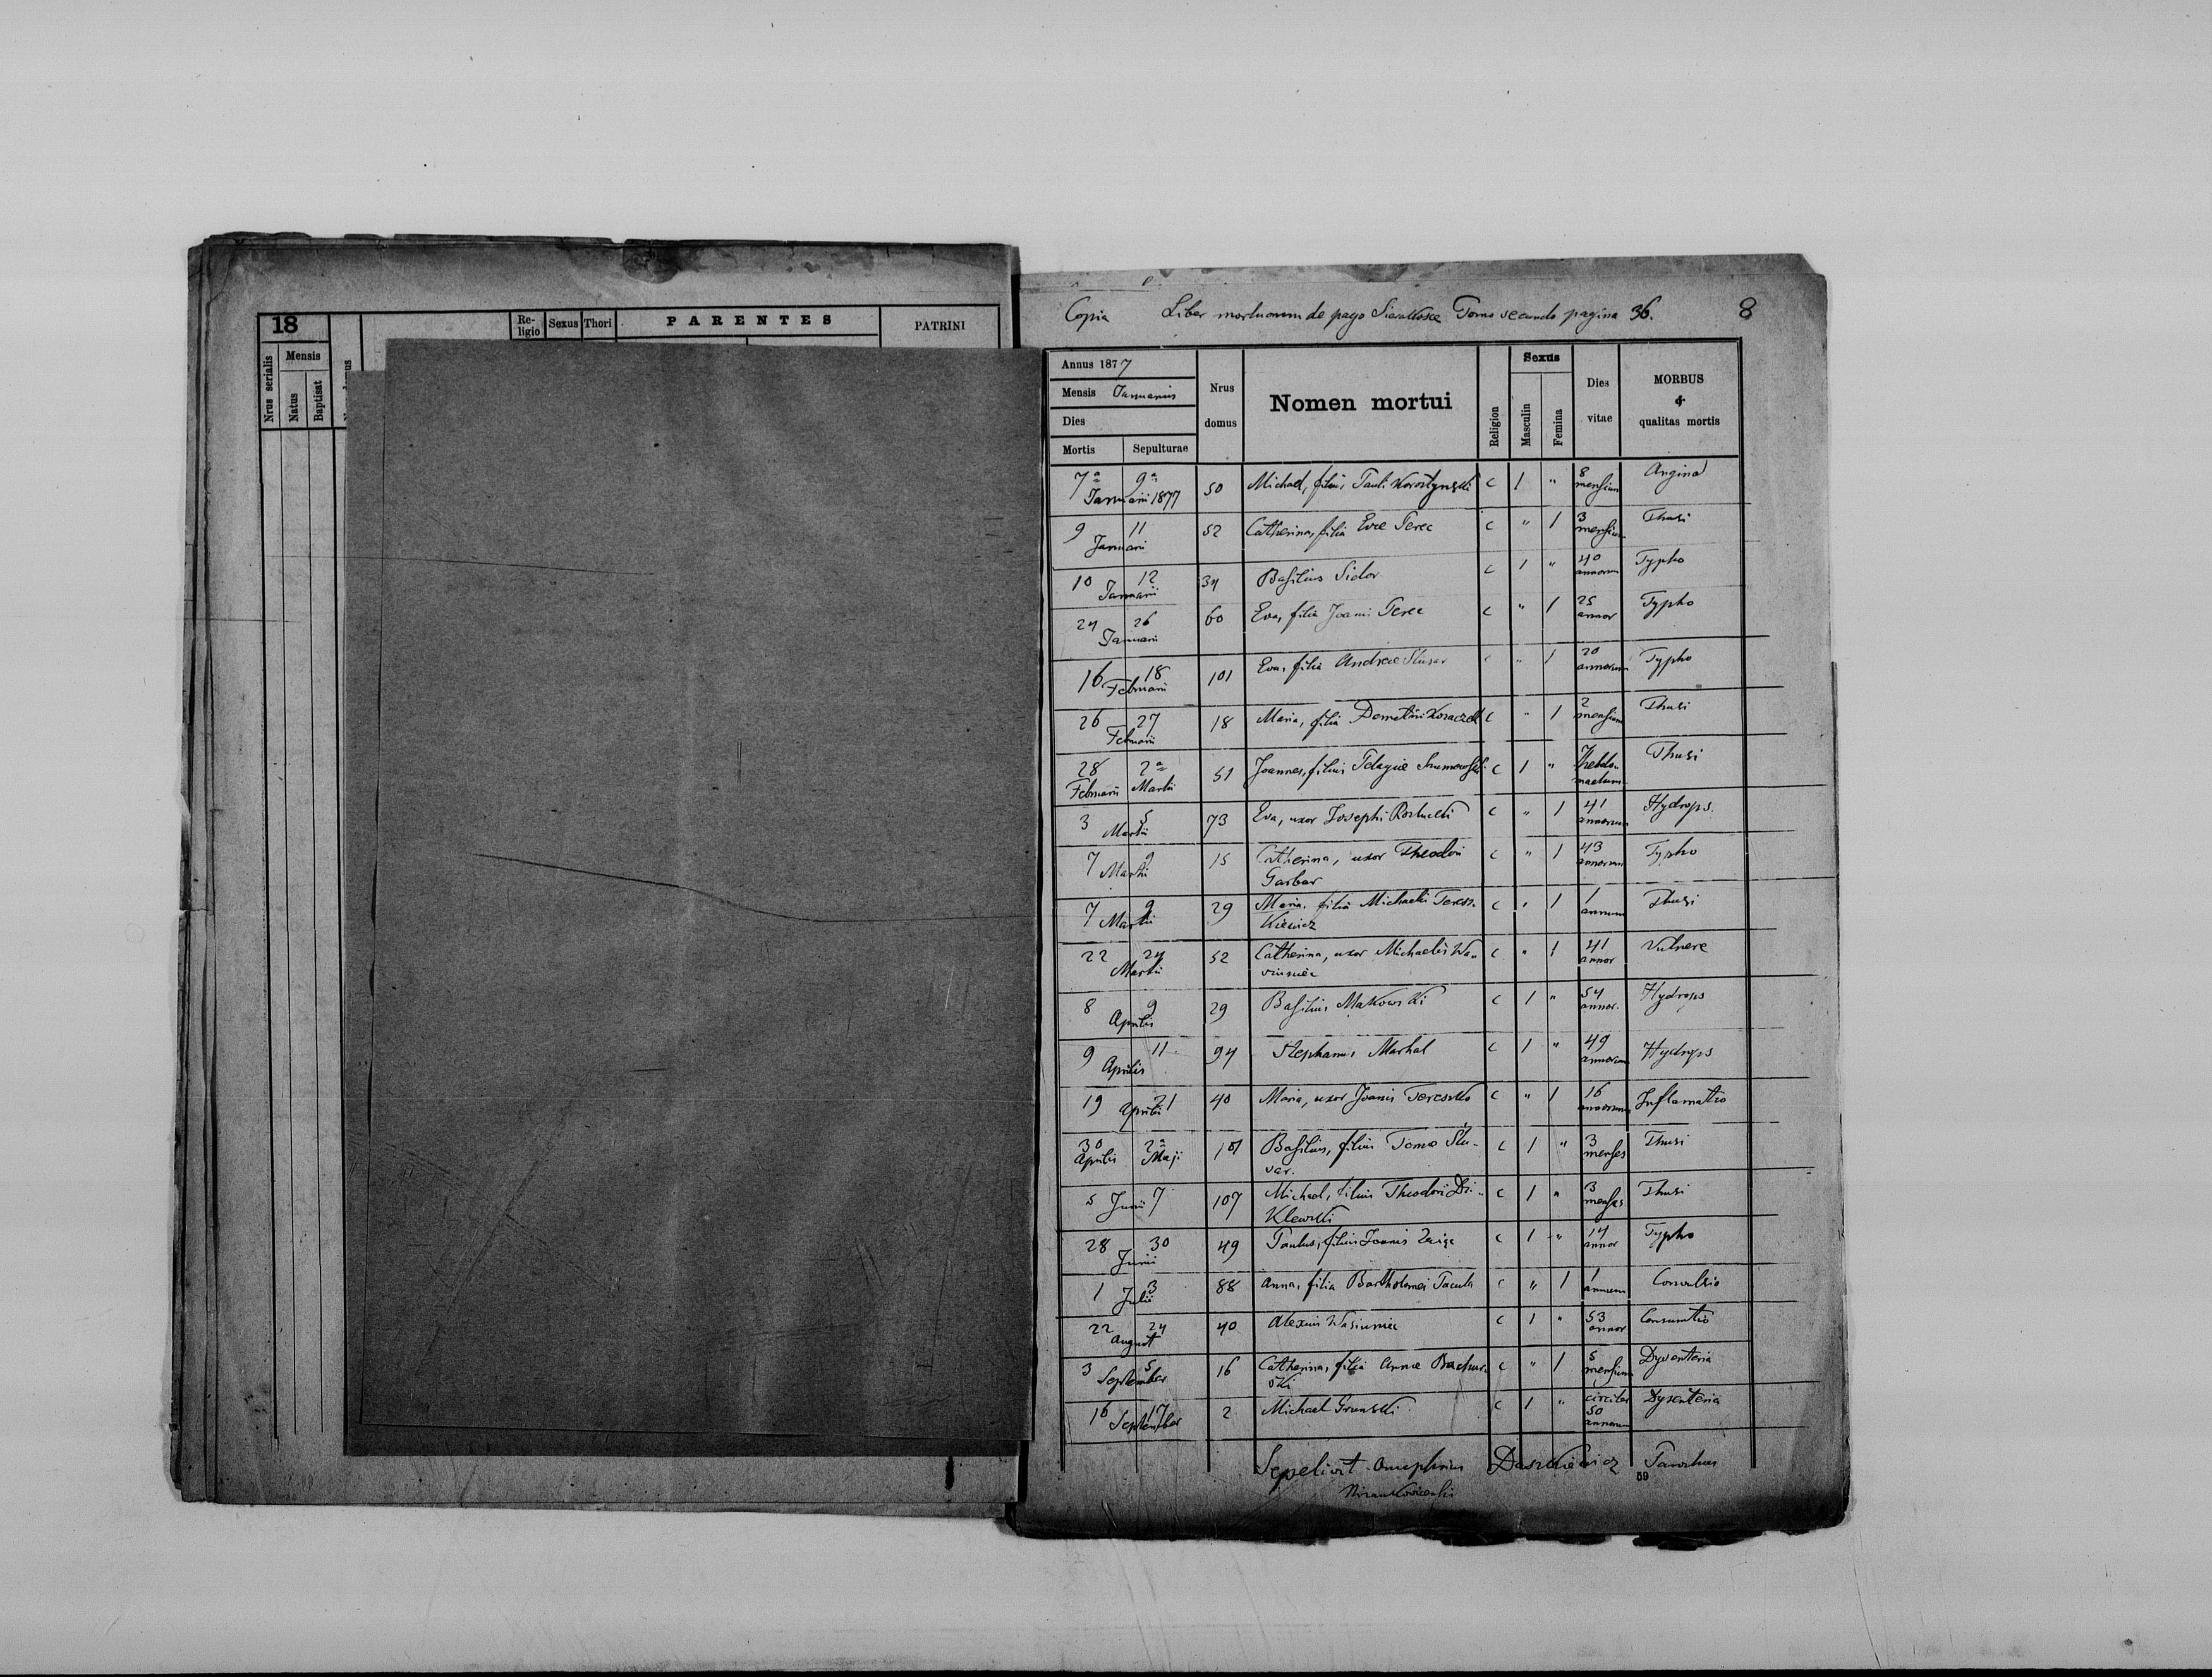 18
Re-
ligio
Sexus
Thori
PARENTES
PATRINI
Nrus serialis
Mensis
Natus
Baptisat
Copia Liber mortuorum de pago Tomo secundo pagina 36. 8
Annus 1877
Mensis Januarius
Dies
Mortis
Sepulturae
Nrus
domus
Nomen mortui
Religion
Sexus
Masculin
Femina
Dies
vitae
MORBUS
&
qualitas mortis
7a 9a 50 Michael, filius Pauli Korostynski c 1 " 8 Angina
Januarii 1877 mensium
9 11 52 Catherina, filia Evae Terec c " 1 3 Thusi
Januarii mensium
10 12 34 Basilius Sidor c 1 " 40 Typho
Januarii annorum
24 26 60 Eva, filia Joanni Terec c " 1 25 Typho
Januarii annor
16 18 101 Eva, filia Andreae Slusar c " 1 20 Typho
Februarii annorum
26 27 18 Maria, filia Demetrii c " 1 2 Thusi
Februarii mensium
28 2a 51 Joannes, filius Pelagiae c 1 " 7 hebdo- Thusi
Februarii Martii madum
3 5 73 Eva, uxor Josephi c " 1 41 Hydrops
Martii annorum
7 9 15 Catherina, uxor Theodori c " 1 43 Typho
Martii Garbar annorum
7 9 29 Maria, filia Michaelis Teresz- c " 1 1 Thusi
Martii kiewicz annum
22 24 52 Catherina, uxor Michaelis Wa- c " 1 41 Vulnere
Martii annor
8 9 29 Basilius Makowski c 1 " 54 Hydrops
Aprilis annor.
9 11 94 Stephanus Marhal c 1 " 49 Hydrops
Aprilis annorum
19 21 40 Maria, uxor Joannis Tereszko c " 1 16 Inflamatio
Aprilis annorum
30 2a 101 Basilius, filius Slu- c 1 " 3 Thusi
Aprilis Maji sar. menses
5 Junii 7 107 Michael, filius Theodori Dzi- c 1 " 3 Thusi
klewski menses
28 30 49 Paulus, filius Joannis c 1 " 14 Typho
Junii annor
1 3 88 Anna, filia Bartholomei Pacula c " 1 1 Convulsio
Julii annum
22 24 40 Alexius Wasiuniec c 1 " 53 Consumtio
August annor
3 5 16 Catherina, filia Annae Bachur- c " 1 5 Dysenteria
September ski mensium
16 17 2 Michael c 1 " circiter Dysenteria
September 50
annorum
Sepelivit Onuphrius Daszkiewicz Parochus
59